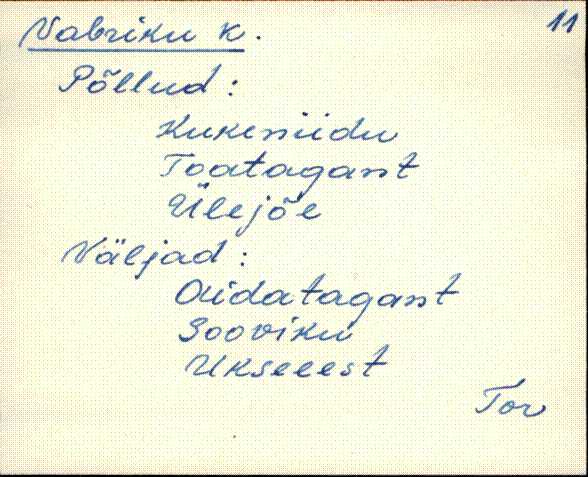 Vabriku k. 11
Põllud:
Kukeniidu
Toatagant
Ülejõe
Väljad:
Aidatagant
Sooviku
Ukseeest
Tor